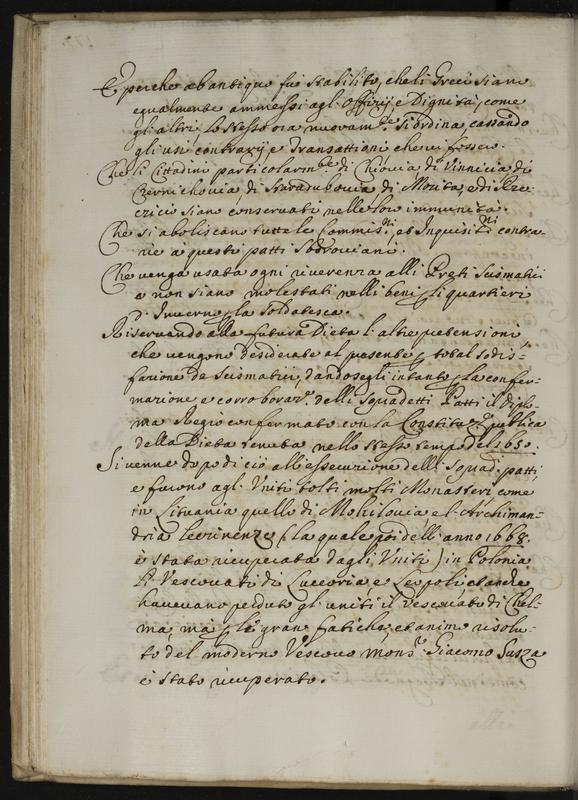 E perche ab antiquo fu stabilito, che li Greci siano
egualmente ammessi agl' Offizij e Dignità, come
gl' altri, lo stesso ora nuovam.te si ordina, cassando
gli usi, contrarij, e transattioni che vi fossero.
Che li Cittadini particolarm.te di Chiovia, di Vinnicia, di
Czernichovia, di Staradubovia, di
siano conservati nelle loro immunità.
Che si aboliscano tutte le Commis.ni, et Inquisit.ni contra-
rie à questi patti sodrociani.
Che venga usata ogni riverenza alli Preti Scismatici
e non siano molestati nelli beni p li quartieri
d' Inverno p la soldatesca.
Riservando alla futura Dieta l' altre pretensioni,
che vengono desiderate al presente p total sodis-
fazione de Scismatici, dandosegli intanto p la confer-
mazione e corroboraz.e delli sopradetti Patti il Diplo-
ma Regio confermato con la Constituz.e publica
della Dieta tenuta nello stesso tempo del 1650.
Si venne dopo di ciò all' essecuzione delli soprad. patti,
e furono agl' Uniti tolti molti Monasteri, come
in Lituania quello di Mohilovia, e l' Archiman-
dria Lecrinenze (la quale poi dell' anno 1668.
è stata ricuperata dagli Uniti) in Polonia
li Vescovati di Luceoria, e Leopoli, et anche
havevano perduto gl' uniti il Vescovato di Chel-
ma, mà p le gran fatiche, et animo risolu-
to del moderno Vescovo Mons.r Giacomo Susza
è stato ricuperato.